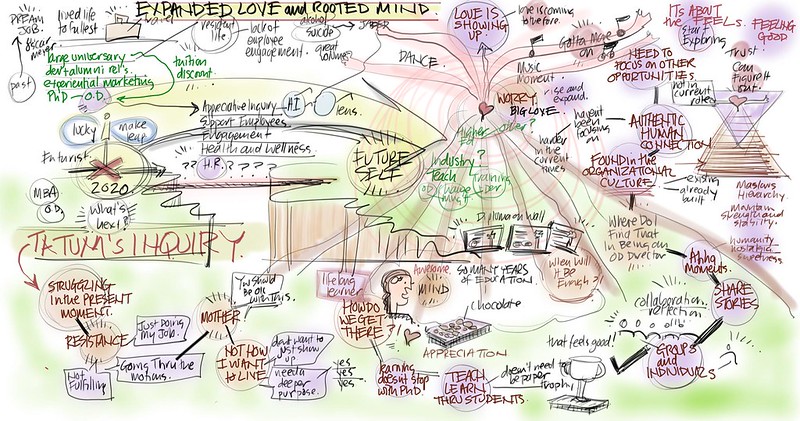 EXPANDED LOVE and ROOTED MIND.
DREAM
JOB.
lived life
to fullest
resident
life
lack of
employee
engagement.
alcohol
suicide
great
colleagues
past
large university
dev + alumni rel's.
experiential marketing
PhD - O.D.
tuition
discount.
Appreciative Inquiry
A.I.
lens.
Support Employees
Engagement
Health and Wellness.
H.R. ? ? ? ? ?
lucky
make
leap
Futurist
2020
MBA
O.D.
What's
next?
FUTURE
SELF
DANCE.
LOVE IS
SHOWING
UP.
Music
Moment.
Gotta Move
on
WORRY.
BIG LOVE
rise and
expand.
Higher
Ed
over?
Industry
Teach
Training
OD
harder
in the
current
times
haven't
been
focusing
on
NEED TO
FOCUS ON OTHER
OPPORTUNITIES.
not in
current
roles
ITS ABOUT
the FEELS.
FEELING
GOOD
Start
Exploring
Trust
Can
Figure it
out.
AUTHENTIC
HUMAN
CONNECTION
FOUND in the
ORGANIZATIONAL
CULTURE
existing
already
built
Maslows
Hierarchy.
Maintain
strength and
stability.
humanity
nostalgic
sweetness
Where Do I
Find That
In Being an
OD Director
Ahha
Moments.
SHARE
STORIES
collaboration.
reflection
GROUPS
and
INDIVIDUALS
that feels good!
doesn't need to
be paper
trophy
TEACH
LEARN
THRU STUDENTS.
Diploma on wall
SO MANY YEARS
of EDUCATION.
When Will
It Be
Enough?!
Awesome.
MIND
Chocolate
APPRECIATION
life long
learner
HOW DO
WE GET
THERE?
Learning
doesn't stop
with PhD!
TATUM'S INQUIRY.
STRUGGLING
in the PRESENT
MOMENT.
RESISTANCE
Just Doing
My Job.
Not
Fulfilling
Going Thru the
Motions.
MOTHER
You Should
Be OK
with This.
NOT HOW
I WANT
to LIVE
don't want to
just show
up
needs
deeper
purpose.
yes
yes
yes